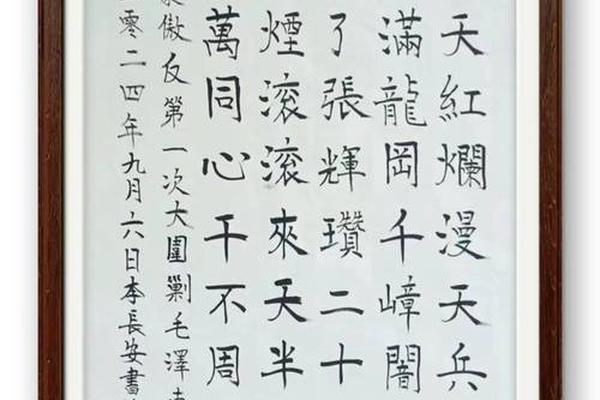 天紅爛漫天兵
滿龍岡千嶂闇
了張輝瓚二十
煙滚滚來天半
萬同心干不周
傲反第一次大圍剿毛澤
零二四年九月六日李長安書